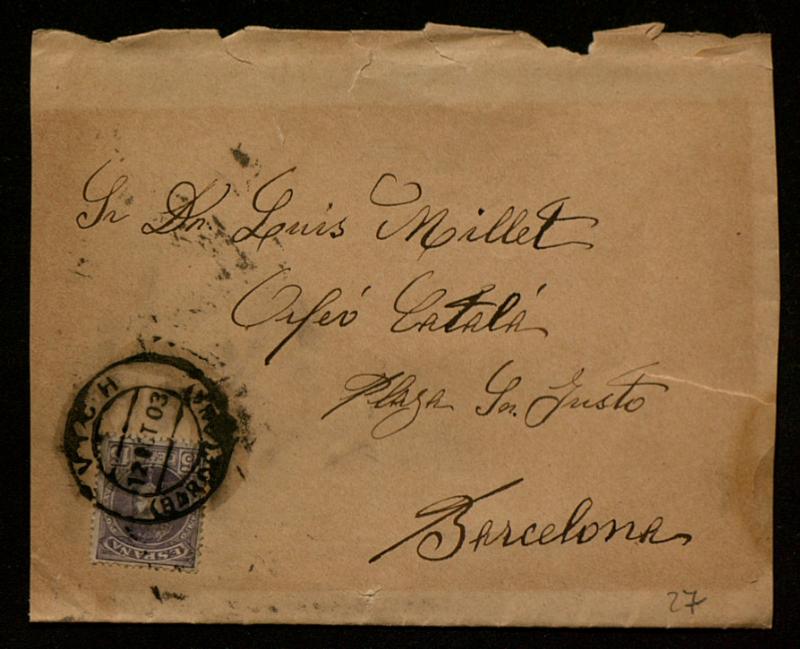 Sr Dn. Luis Millet
Orfeó Català
Plaza Sn. Justo
Barcelona
VICH
12 OCT 03
(BARCELONA)
ESPAÑA
27